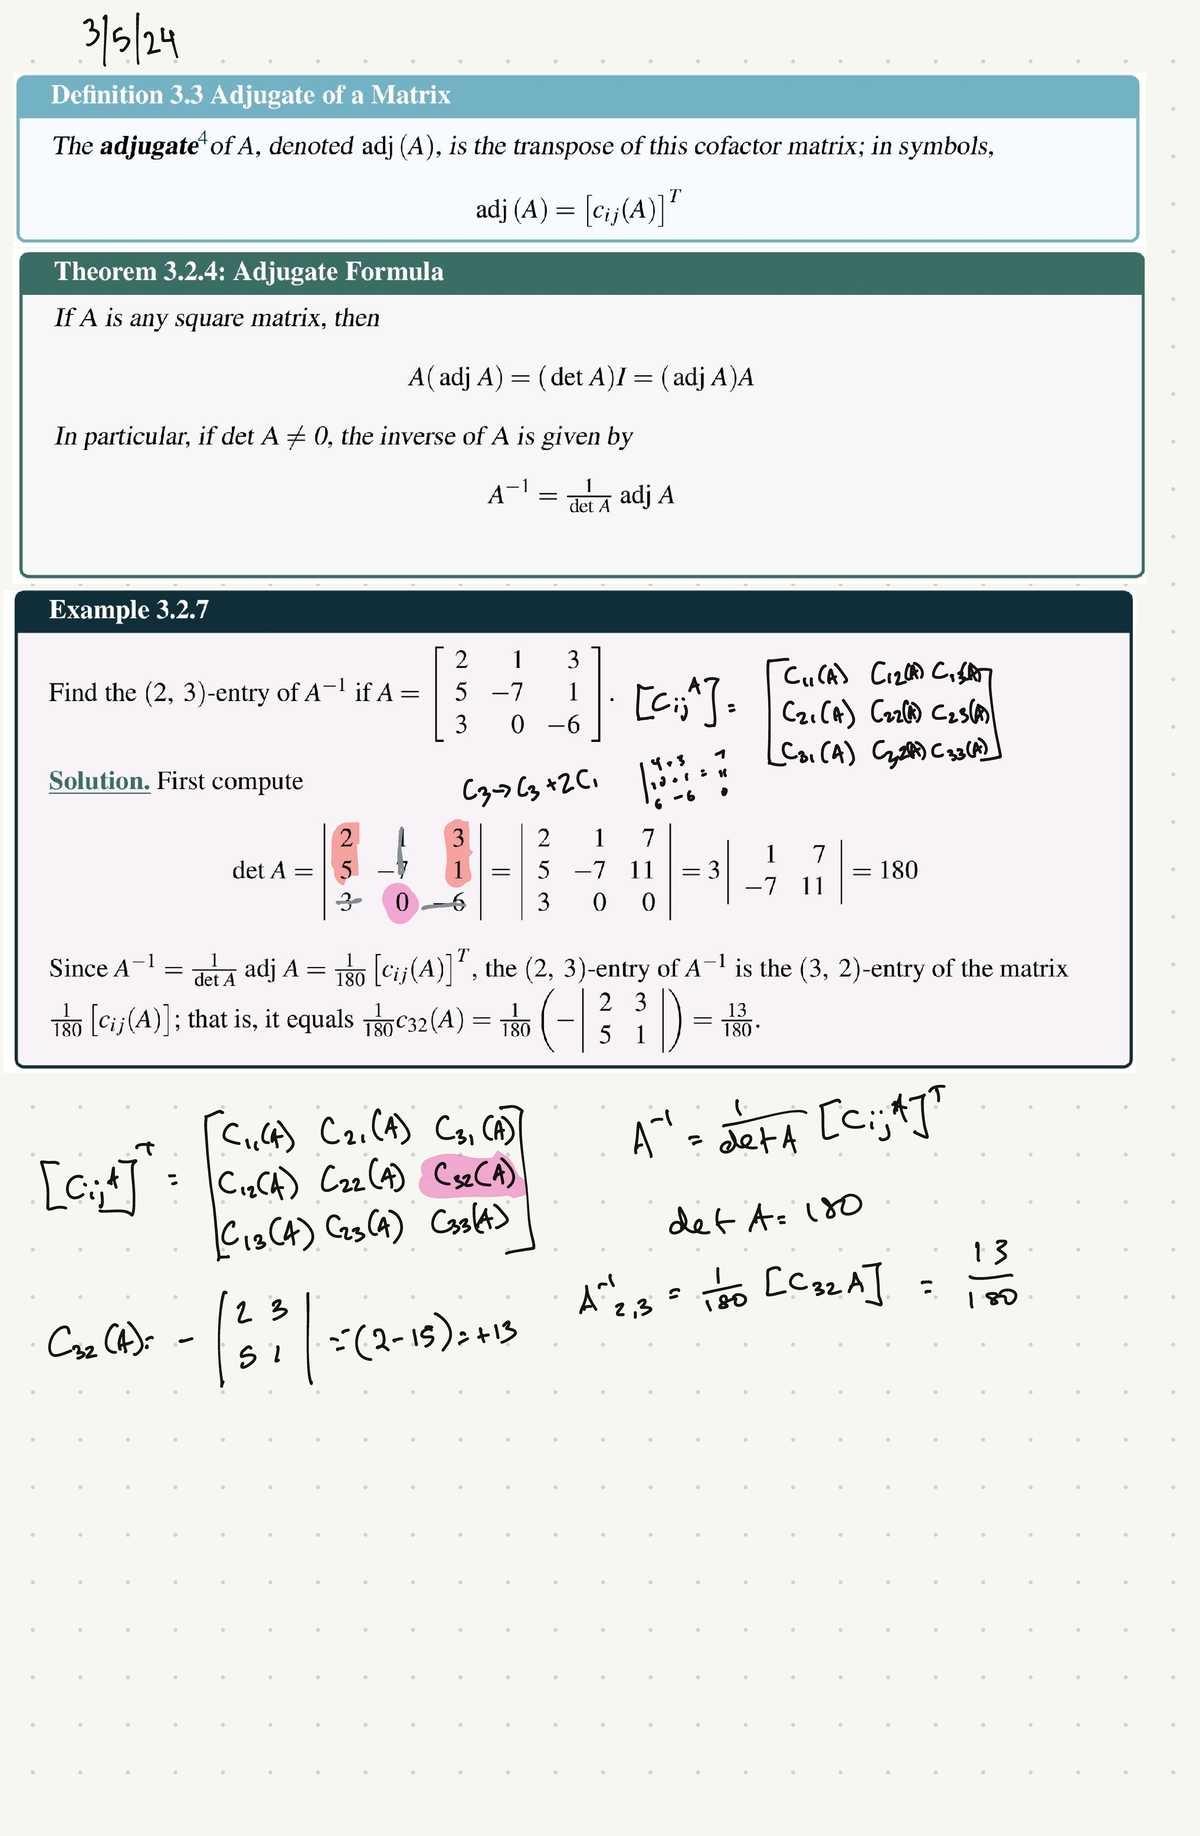 3/5/24
Definition 3.3 Adjugate of a Matrix
The adjugate⁴ of A, denoted adj (A), is the transpose of this cofactor matrix; in symbols,
adj (A) = [c_ij(A)]^T
Theorem 3.2.4: Adjugate Formula
If A is any square matrix, then
A(adj A) = (det A)I = (adj A)A
In particular, if det A ≠ 0, the inverse of A is given by
A^−1 = 1/det A adj A
Example 3.2.7
Find the (2, 3)-entry of A^−1 if A = [2 1 3; 5 −7 1; 3 0 −6].
[C_ij A] = [C_11(A) C_12(A) C_13(A); C_21(A) C_22(A) C_23(A); C_31(A) C_32(A) C_33(A)]
Solution. First compute
C_3 → C_3 + 2C_1
4 + 3 = 7
10 + 1 = 11
6 − 6 = 0
det A = |2 1 3; 5 −7 1; 3 0 −6| = |2 1 7; 5 −7 11; 3 0 0| = 3|1 7; −7 11| = 180
Since A^−1 = 1/det A adj A = 1/180 [c_ij(A)]^T, the (2, 3)-entry of A^−1 is the (3, 2)-entry of the matrix
1/180 [c_ij(A)]; that is, it equals 1/180 c_32(A) = 1/180 (−|2 3; 5 1|) = 13/180.
[C_ij A]^T = [C_11(A) C_21(A) C_31(A); C_12(A) C_22(A) C_32(A); C_13(A) C_23(A) C_33(A)]
A^-1 = 1/det A [C_ij A]^T
det A = 180
A^-1_2,3 = 1/180 [C_32 A] = 13/180
C_32(A) = - |2 3; 5 1| = -(2-15) = +13